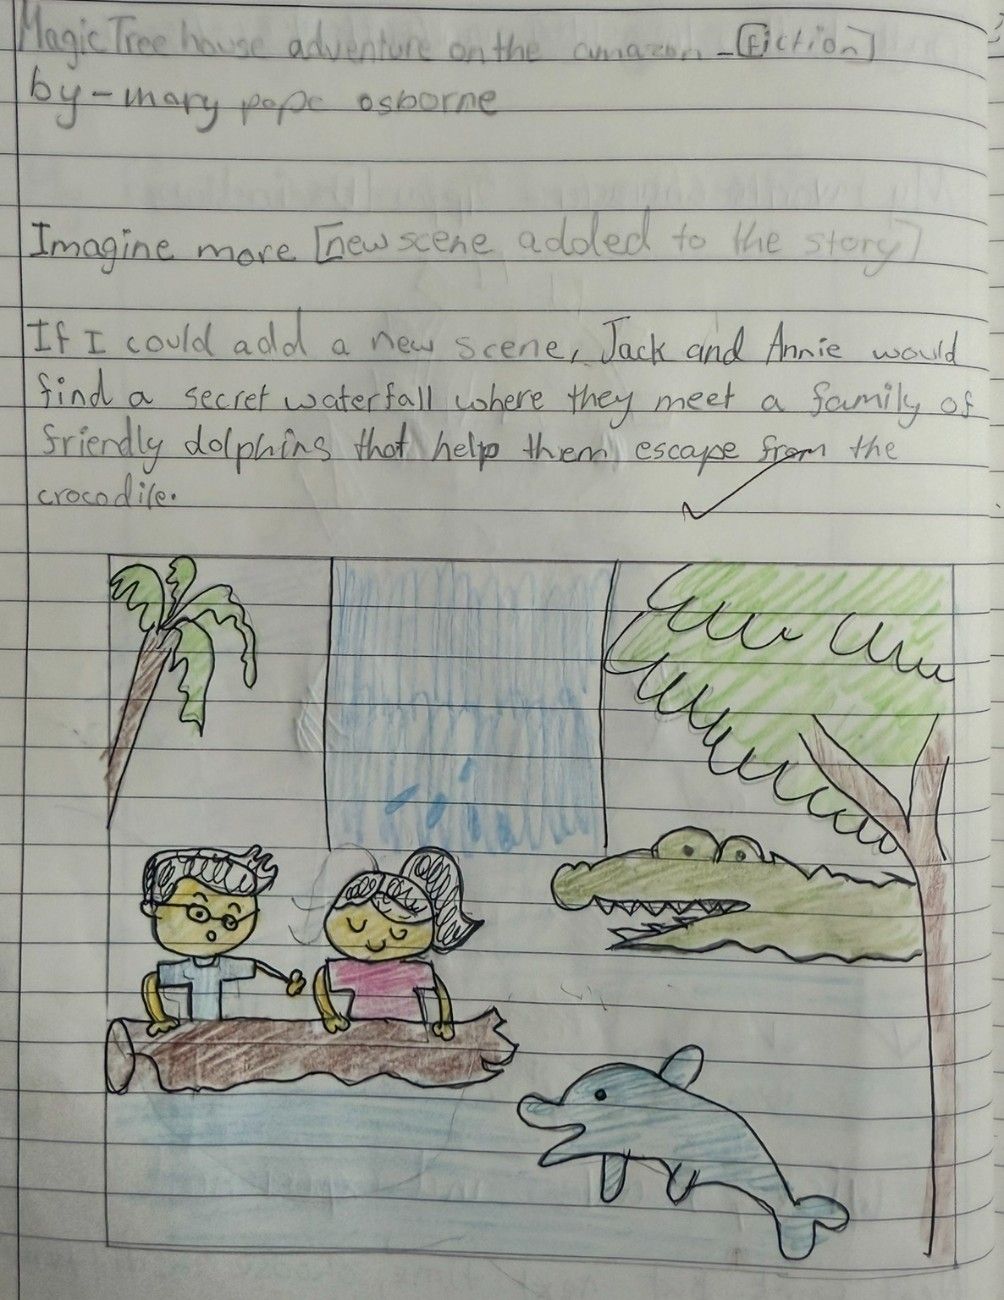 Magic Tree house adventure on the amazon - [fiction]
by - mary pope osborne
Imagine more [new scene added to the story]
If I could add a new scene, Jack and Annie would
find a secret waterfall where they meet a family of
friendly dolphins that help them escape from the
crocodile.